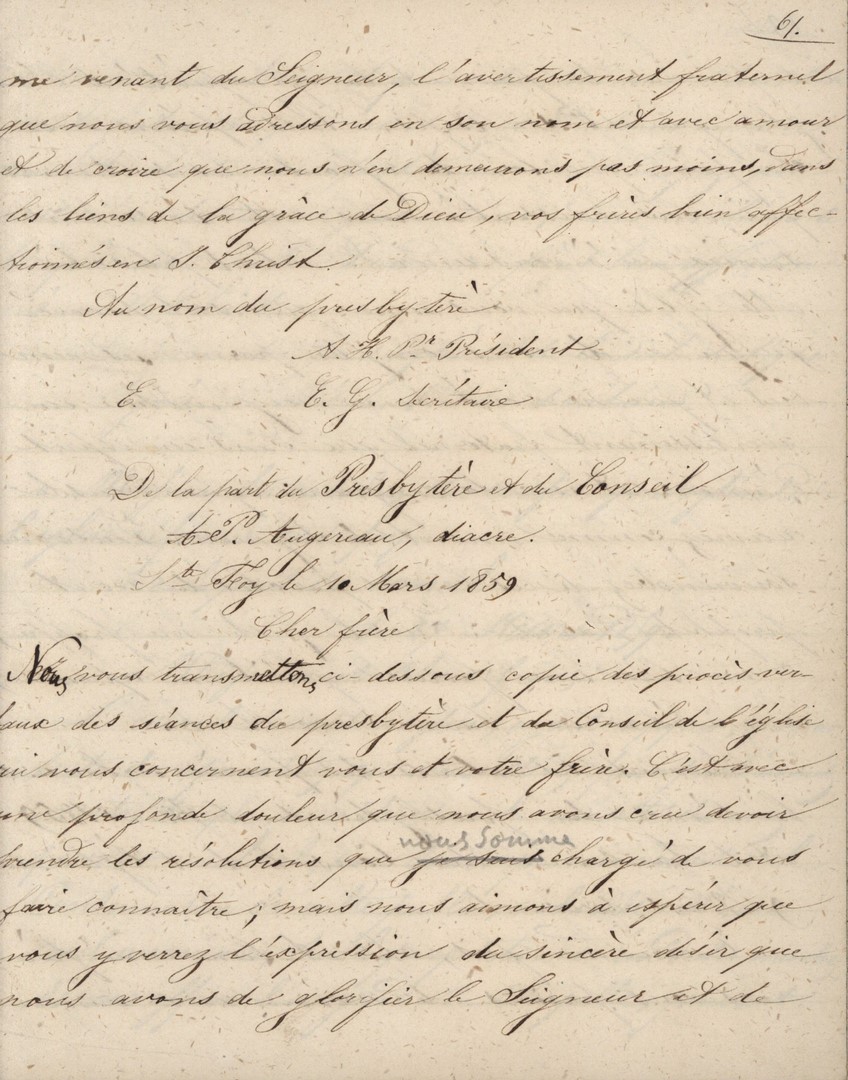 61.
me venant du Seigneur, l'avertissement fraternel
que nous vous adressons en son nom et avec amour
et de croire que nous n'en demeurons pas moins, dans
les liens de la grâce de Dieu, vos frères bien affec-
tionnés en J. Christ.
Au nom du presbytère
A. H. Pr Président
E. E. G. Secrétaire
De la part du Presbytère et du Conseil
A. P. Augereau, diacre.
Ste Foy le 10 Mars 1859
Cher frère
Nous vous transmettons ci-dessous copie des procès ver-
baux des séances du presbytère et du Conseil de l'église
qui vous concernent vous et votre frère. C'est avec
une profonde douleur que nous avons cru devoir
nous somme
prendre les résolutions que je suis chargé de vous
faire connaître; mais nous aimons à espérer que
vous y verrez l'expression du sincère désir que
nous avons de glorifier le Seigneur et de